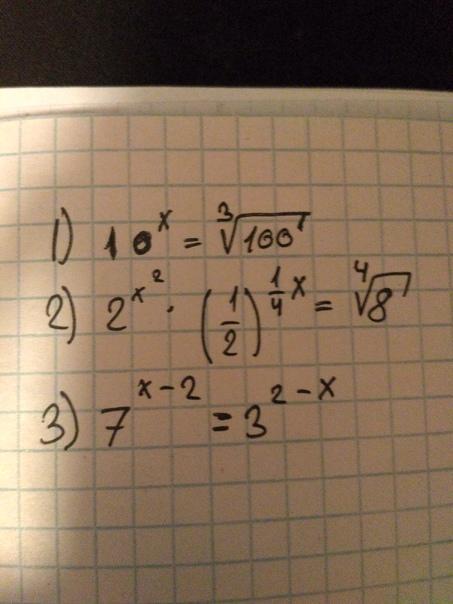 1) 10^x = ∛100
2) 2^(x^2) · (1/2)^(1/4 x) = ∜8
3) 7^(x-2) = 3^(2-x)